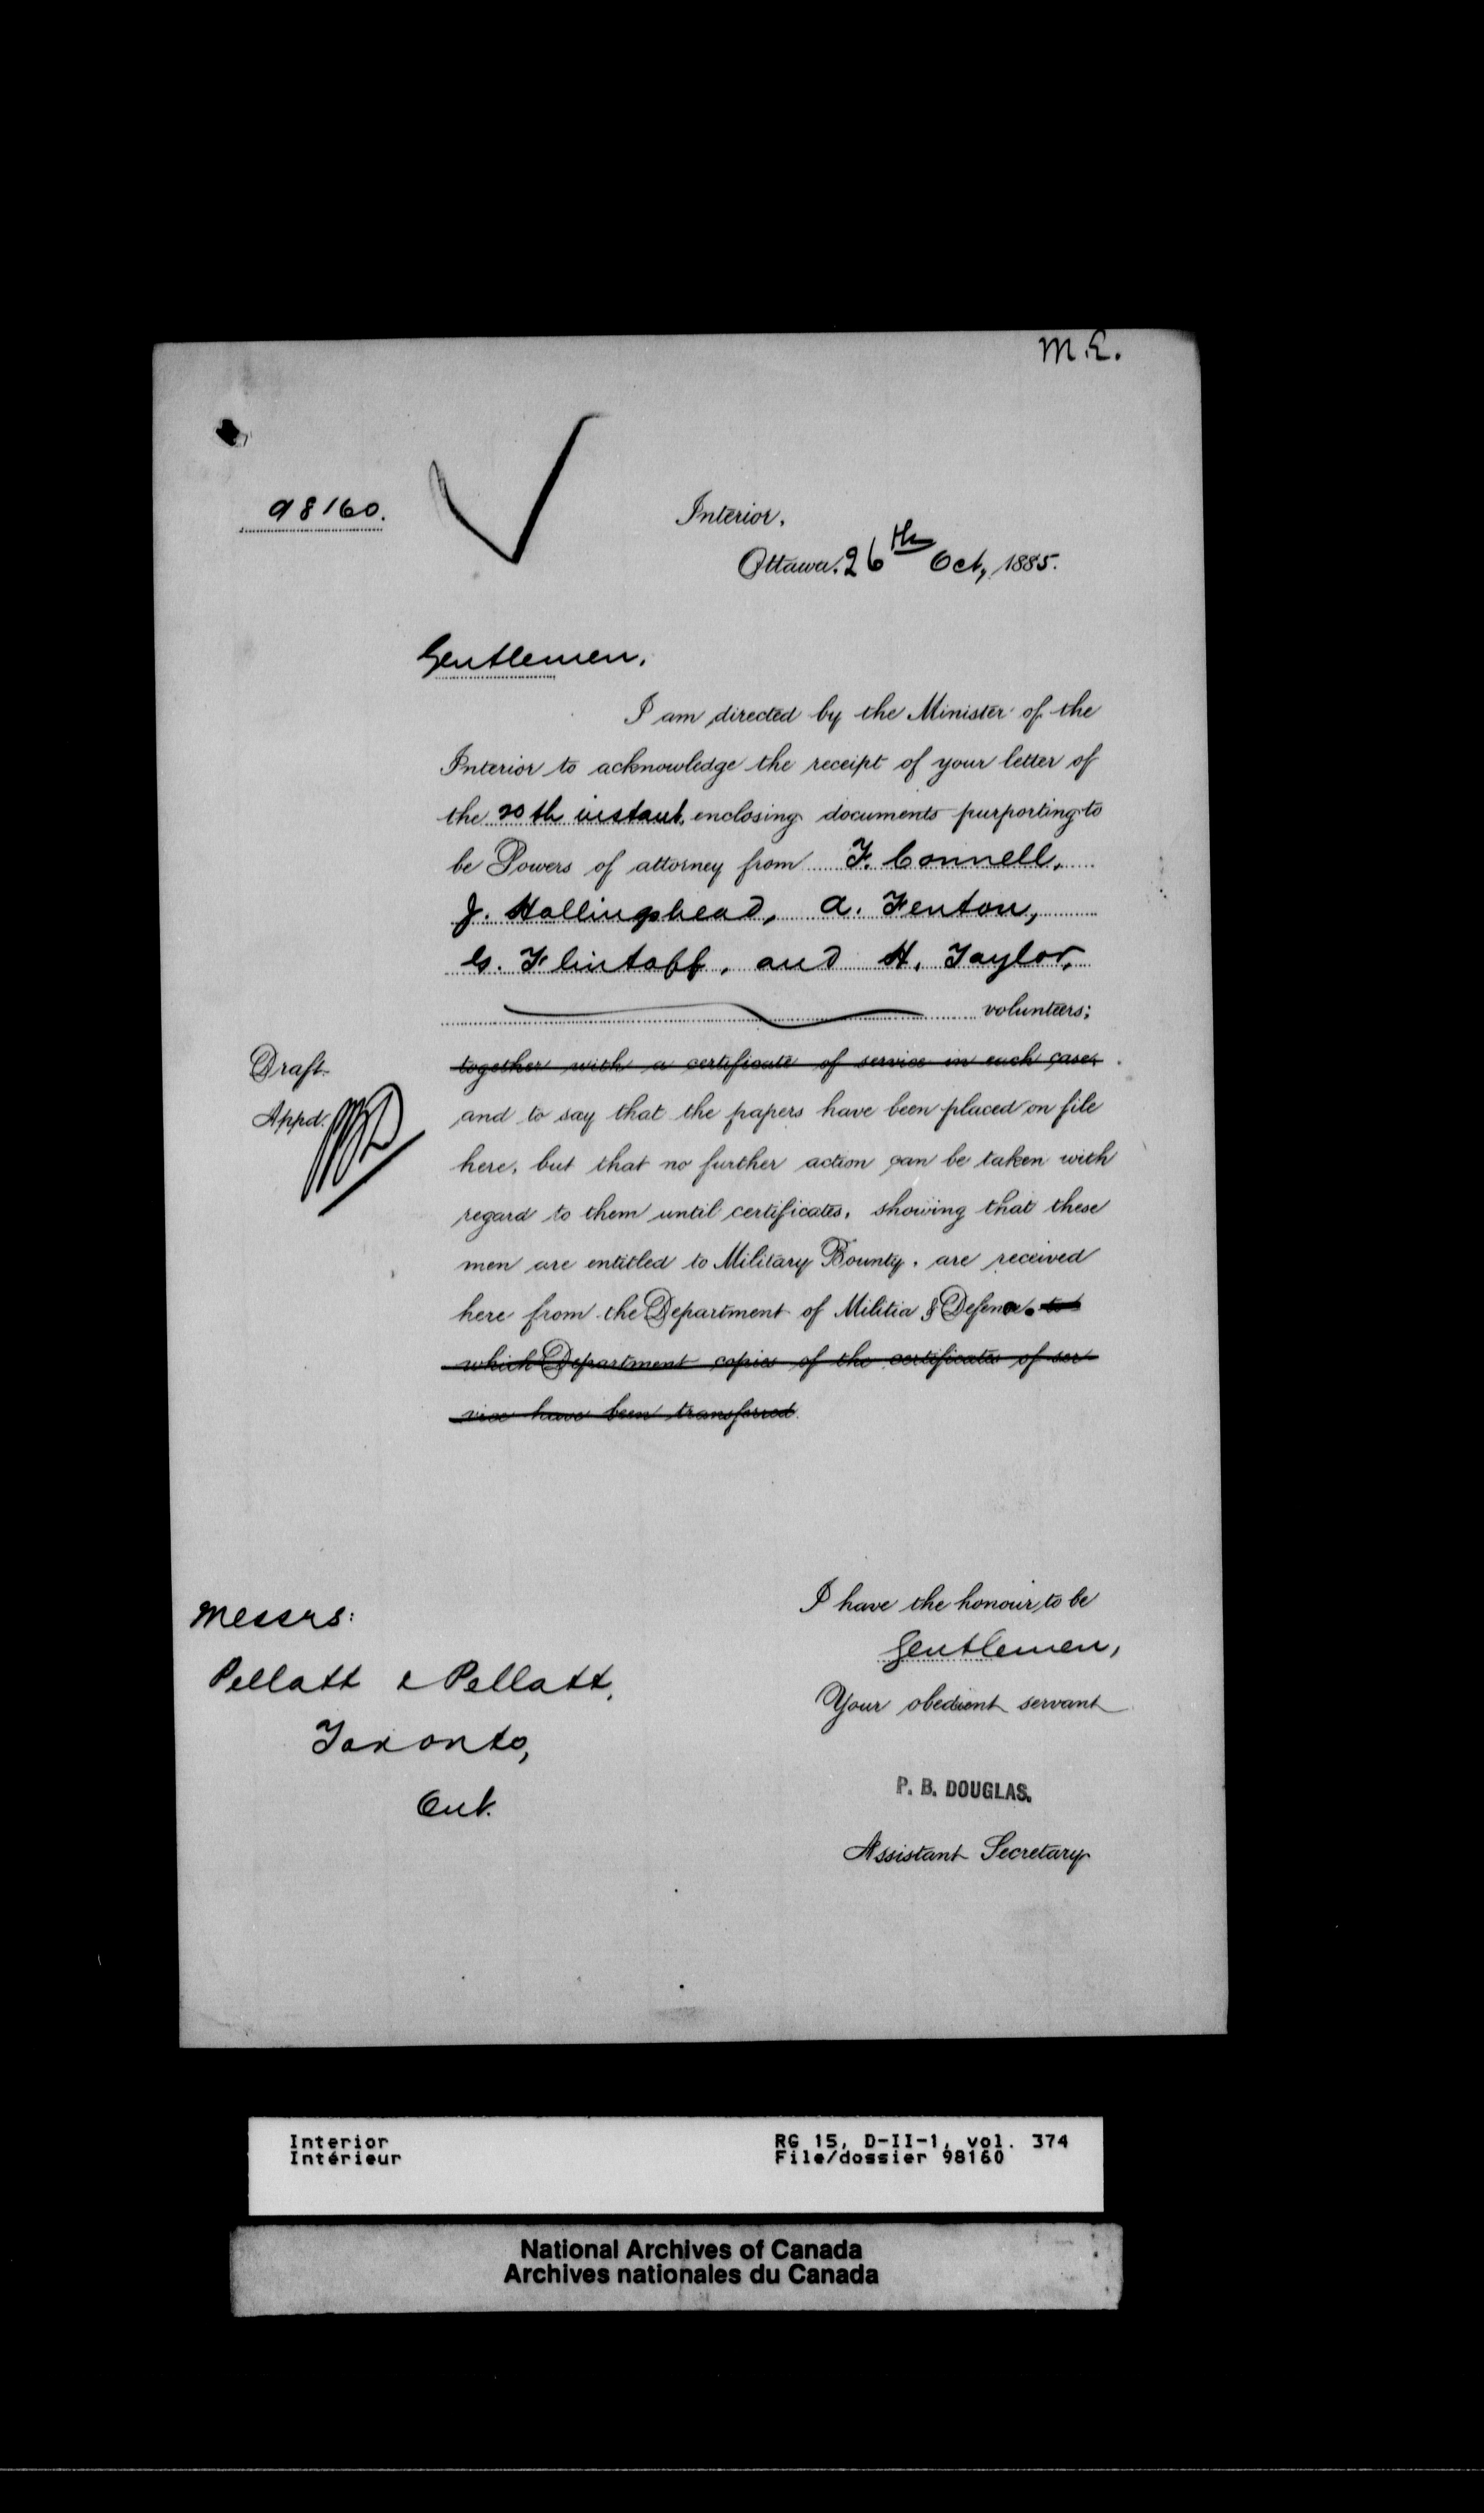 M.E.
98160.
Interior,
Ottawa, 26th Oct, 1885.
Gentlemen,
I am directed by the Minister of the
Interior to acknowledge the receipt of your letter of
the 20th instant, enclosing documents purporting to
be Powers of attorney from F. Connell,
J. Hollingshead, A. Fenton,
G. Flintoff, and H. Taylor,
volunteers;
together with a certificate of service in each case,
Draft
and to say that the papers have been placed on file
Appd.
here, but that no further action can be taken with
regard to them until certificates, showing that these
men are entitled to Military Bounty, are received
here from the Department of Militia & Defence. to
which Department copies of the certificates of ser
vice have been transferred.
I have the honour to be
Gentlemen,
Your obedient servant
P. B. DOUGLAS.
Assistant Secretary
Messrs:
Pellatt & Pellatt,
Toronto,
Ont.
Interior
Intérieur
RG 15, D-II-1, vol. 374
File/dossier 98160
National Archives of Canada
Archives nationales du Canada